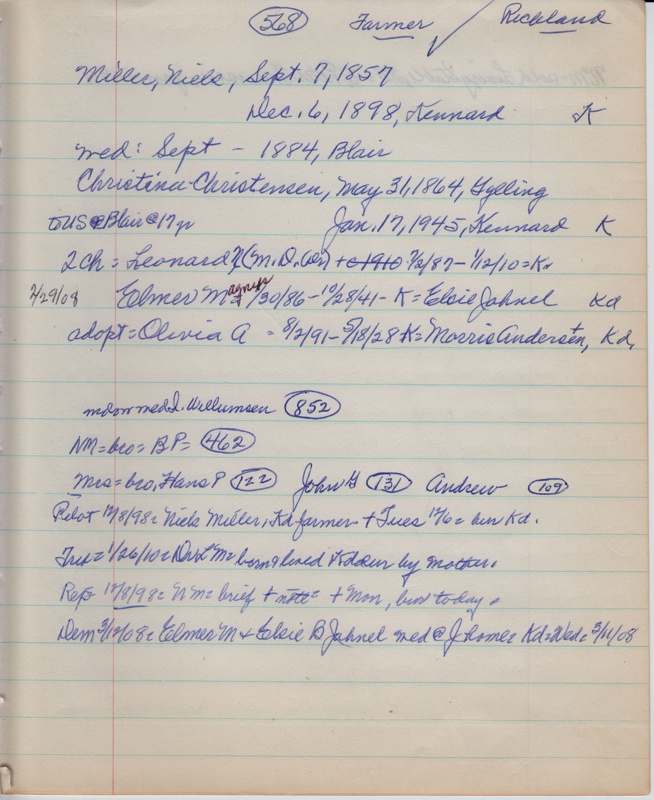 568 Farmer ✓ Richland
Miller, Niels, Sept. 7, 1857
Dec. 6, 1898, Kennard K
med: Sept - 1884, Blair
Christina Christensen, May 31, 1864, Gylling
to US @ Blair @ 17 yr Jan. 17, 1945, Kennard K
2 ch = Leonard (M.D. Wn) + c 1910 7/2/87 - 1/12/10 = K
agnes
2/29/08 Elmer M = /30/86 - 10/28/41 - K = Elsie Jahnel Kd
adopt = Olivia A - 8/2/91 - 5/18/28 K = Morris Andersen, Kd,
wdow med J. Willumsen 852
NM = bro = B P = 462
Mrs = bro, Hans P 122 John G 131 Andrew 109
Pilot 12/8/98 = Niels Miller, Kd farmer + Tues 12/6 = bur Kd.
Trib = 1/26/10 = Dr L M = born & lived Kd sur by mother.
Rep = 12/8/98 = N M = brief + note = + Mon, bur today.
Dem 3/12/08 = Elmer M & Elsie B Jahnel med @ J home = Kd = Wed = 3/11/08